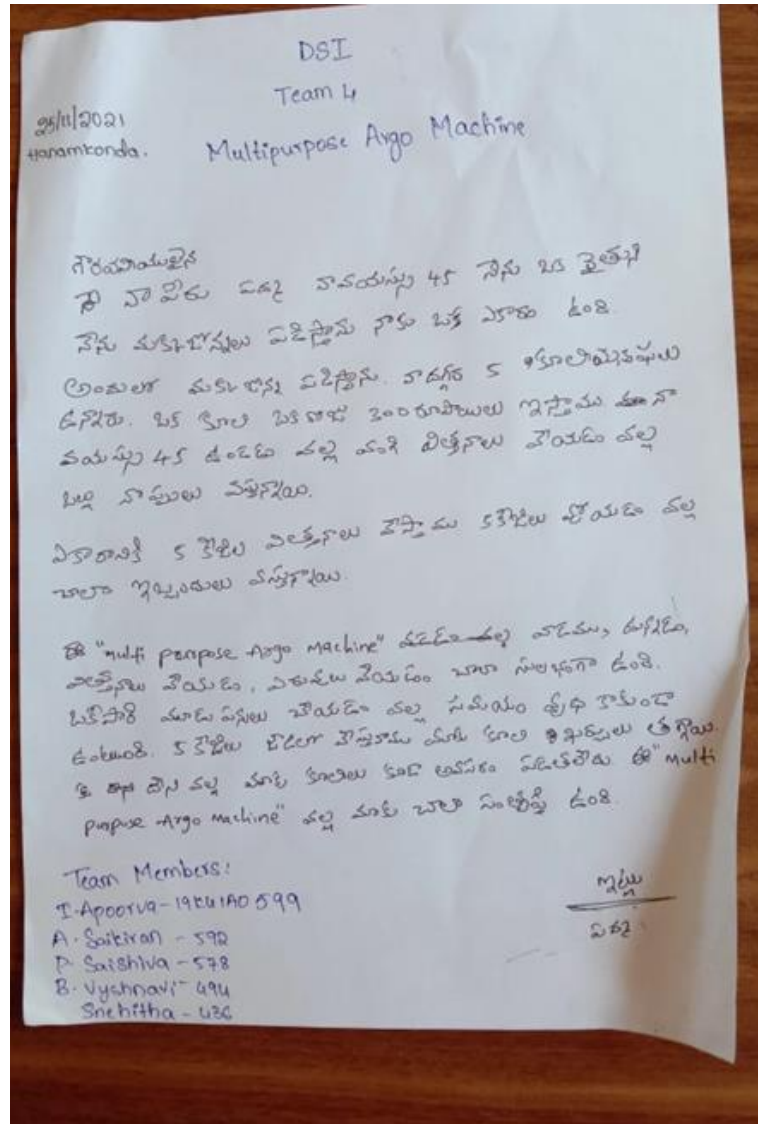 DSI
Team 4
25/11/2021
Hanamkonda.
Multipurpose Argo Machine
గౌరవనీయులైన
నా పేరు పద్మ నావయస్సు 45 నేను ఒక రైతుని
నేను మక్కజొన్నలు పండిస్తాను నాకు ఒక్క ఎకారం ఉంది.
అందులో మక్కజొన్న పండిస్తాను. నాదగ్గర 5
ఉన్నారు. ఒక కూలి ఒకరోజు 300 రూపాయిలు ఇస్తాము నా
వయస్సు 45 ఉండడం వల్ల వంగి విత్తనాలు వేయడం వల్ల
ఒల్లు నొప్పులు వస్తున్నాయి.
ఏకారానికి 5 కేజీల విత్తనాలు వేస్తాము 5కేజీలు వేయడం వల్ల
చాలా ఇబ్బందులు వస్తున్నాయి.
ఈ "multi purpose Argo Machine" వాడము, దున్నడం,
విత్తనాలు వేయడం, ఎరువులు వేయడం చాలా సులభంగా ఉంది.
ఒకేసారి మూడు పనులు చేయడం వల్ల సమయం వృధా కాకుండా
ఉంటుంది. 5 కేజీలు వేస్తున్నాము మాకు కూలి ఖర్చులు తగ్గాయి.
దీని వల్ల మాకు కూలీలు కూడా అవసరం పడుతలేరు. ఈ "Multi
purpose Argo Machine" వల్ల మాకు చాలా సంతృప్తి ఉంది.
Team Members:
I. Apoorva - 19K41A0599
A. Saikiran - 592
P. Saishiva - 578
B. Vyshnavi - 494
Snehitha - 436
ఇట్లు
పద్మ.